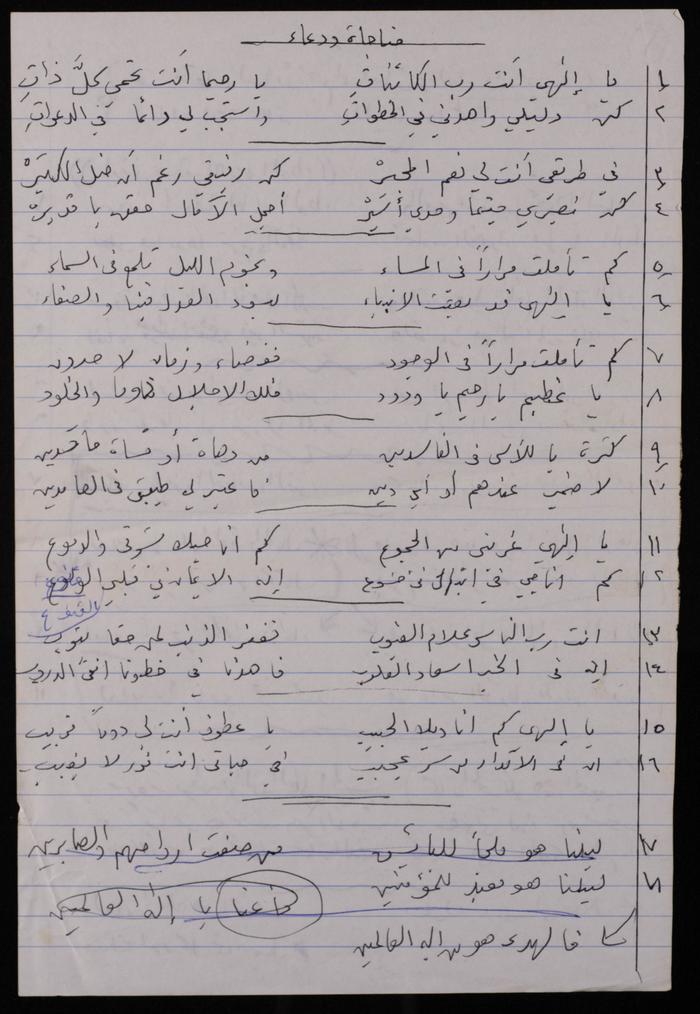 مناجاة ودعاء
١ يا إلهي أنت رب الكائنات يا رحيما أنت تحمي كلَّ ذاتِ
٢ كن دليلي واهدني في الخطواتِ واستجب لي دائما في الدعواتِ
٣ في طريقي أنت لي نعم المجيرْ كن رفيقي رغم
٤ كن نصيري حيثما وحدي أسيرْ أجمل الآمال حقق يا قديرْ
٥ كم تأملت مراراً في المساء ونجوم الليل تلمع في السماء
٦ يا إلهي قد بعثت الانبياء ليسود العدل فينا والصفاء
٧ كم تأملت مراراً في الوجود ففضاء وزمان لا حدود
٨ يا عظيم يا رحيم يا ودود فلك الاجلال دوما والخلود
٩ كثرة يا للأسى في الفاسدين من دهاة أو قساة ماكرين
١٠ لا ضمير عندهم أو أي دين في العابدين
١١ يا إلهي غربتي من الجموع كم أنا شوقي والدموع
١٢ كم اناجي في في خشوع إنه الايمان في قلبي
القنوع
١٣ انت رب الناس وعلام الغيوب تغفر الذنب لمن حقا يتوب
١٤ إنه في الخير اسعاد القلوب فاهدنا في خطونا الدروب
١٥ يا إلهي كم أنا ديك الحبيب يا عطوف أنت لي دوماً قريب
١٦ ان في الاقدار من سر عجيب في حياتي انت نور لا يغيب
١٧ ليلنا هو ملجأ للبائسين من صفت ارواحهم والصابرين
١٨ ليلنا هو معبد للمؤمنين يا إله العالمين
كا فالهدى هو من اله العالمين